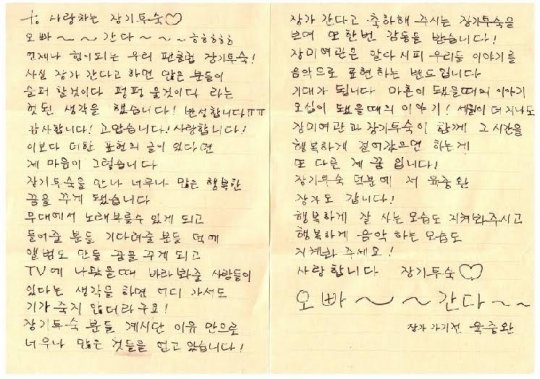 to 사랑하는 장기투숙♡
오빠~~ 간다~~ㅎㅎㅎㅎㅎ
언제나 힘이되는 우리 팬클럽 장기투숙!
사실 장가 간다고 하면 많은 분들이
슬퍼 할것이다 펑펑 울것이다 라는
헛된 생각을 했습니다! 반성합니다ㅠㅠ
감사합니다! 고맙습니다! 사랑합니다!
이보다 더한 표현의 글이 있다면
제 마음이 그렇습니다
장기투숙을 만나 너무나 많은 행복한
꿈을 꾸게 됐습니다
무대에서 노래부를수 있게 되고
들어줄 분들 기다려줄분들 땜에
앨범도 만들 꿈을 꾸게 되고
TV에 나왔을때 바라봐줄 사람들이
있다는 생각을 하면 어디 가서도
기가 죽지 않더라구요!
장기투숙 분들 계시단 이유 만으로
너무나 많은 것들을 얻고 있습니다!
장가 간다고 축하해 주시는 장기투숙을
보며 또 한번 감동을 받습니다!
장미여관은 알다시피 우리들 이야기를
음악으로 표현하는 밴드입니다
기대가 됩니다 마흔이 됐을때의 이야기
오십이 됐을때의 이야기! 세월이 더 지나도
장미여관과 장기투숙이 함께 그 시간을
행복하게 걸어갔으면 하는게
또 다른 제 꿈 입니다!
장기투숙 덕분에 저 육중완
장가도 갑니다!
행복하게 잘 사는 모습도 지켜봐주시고
행복하게 음악 하는 모습도
지켜봐 주세요!
사랑합니다 장기투숙♡
오빠~~간다~~
장가 가기전 육중완